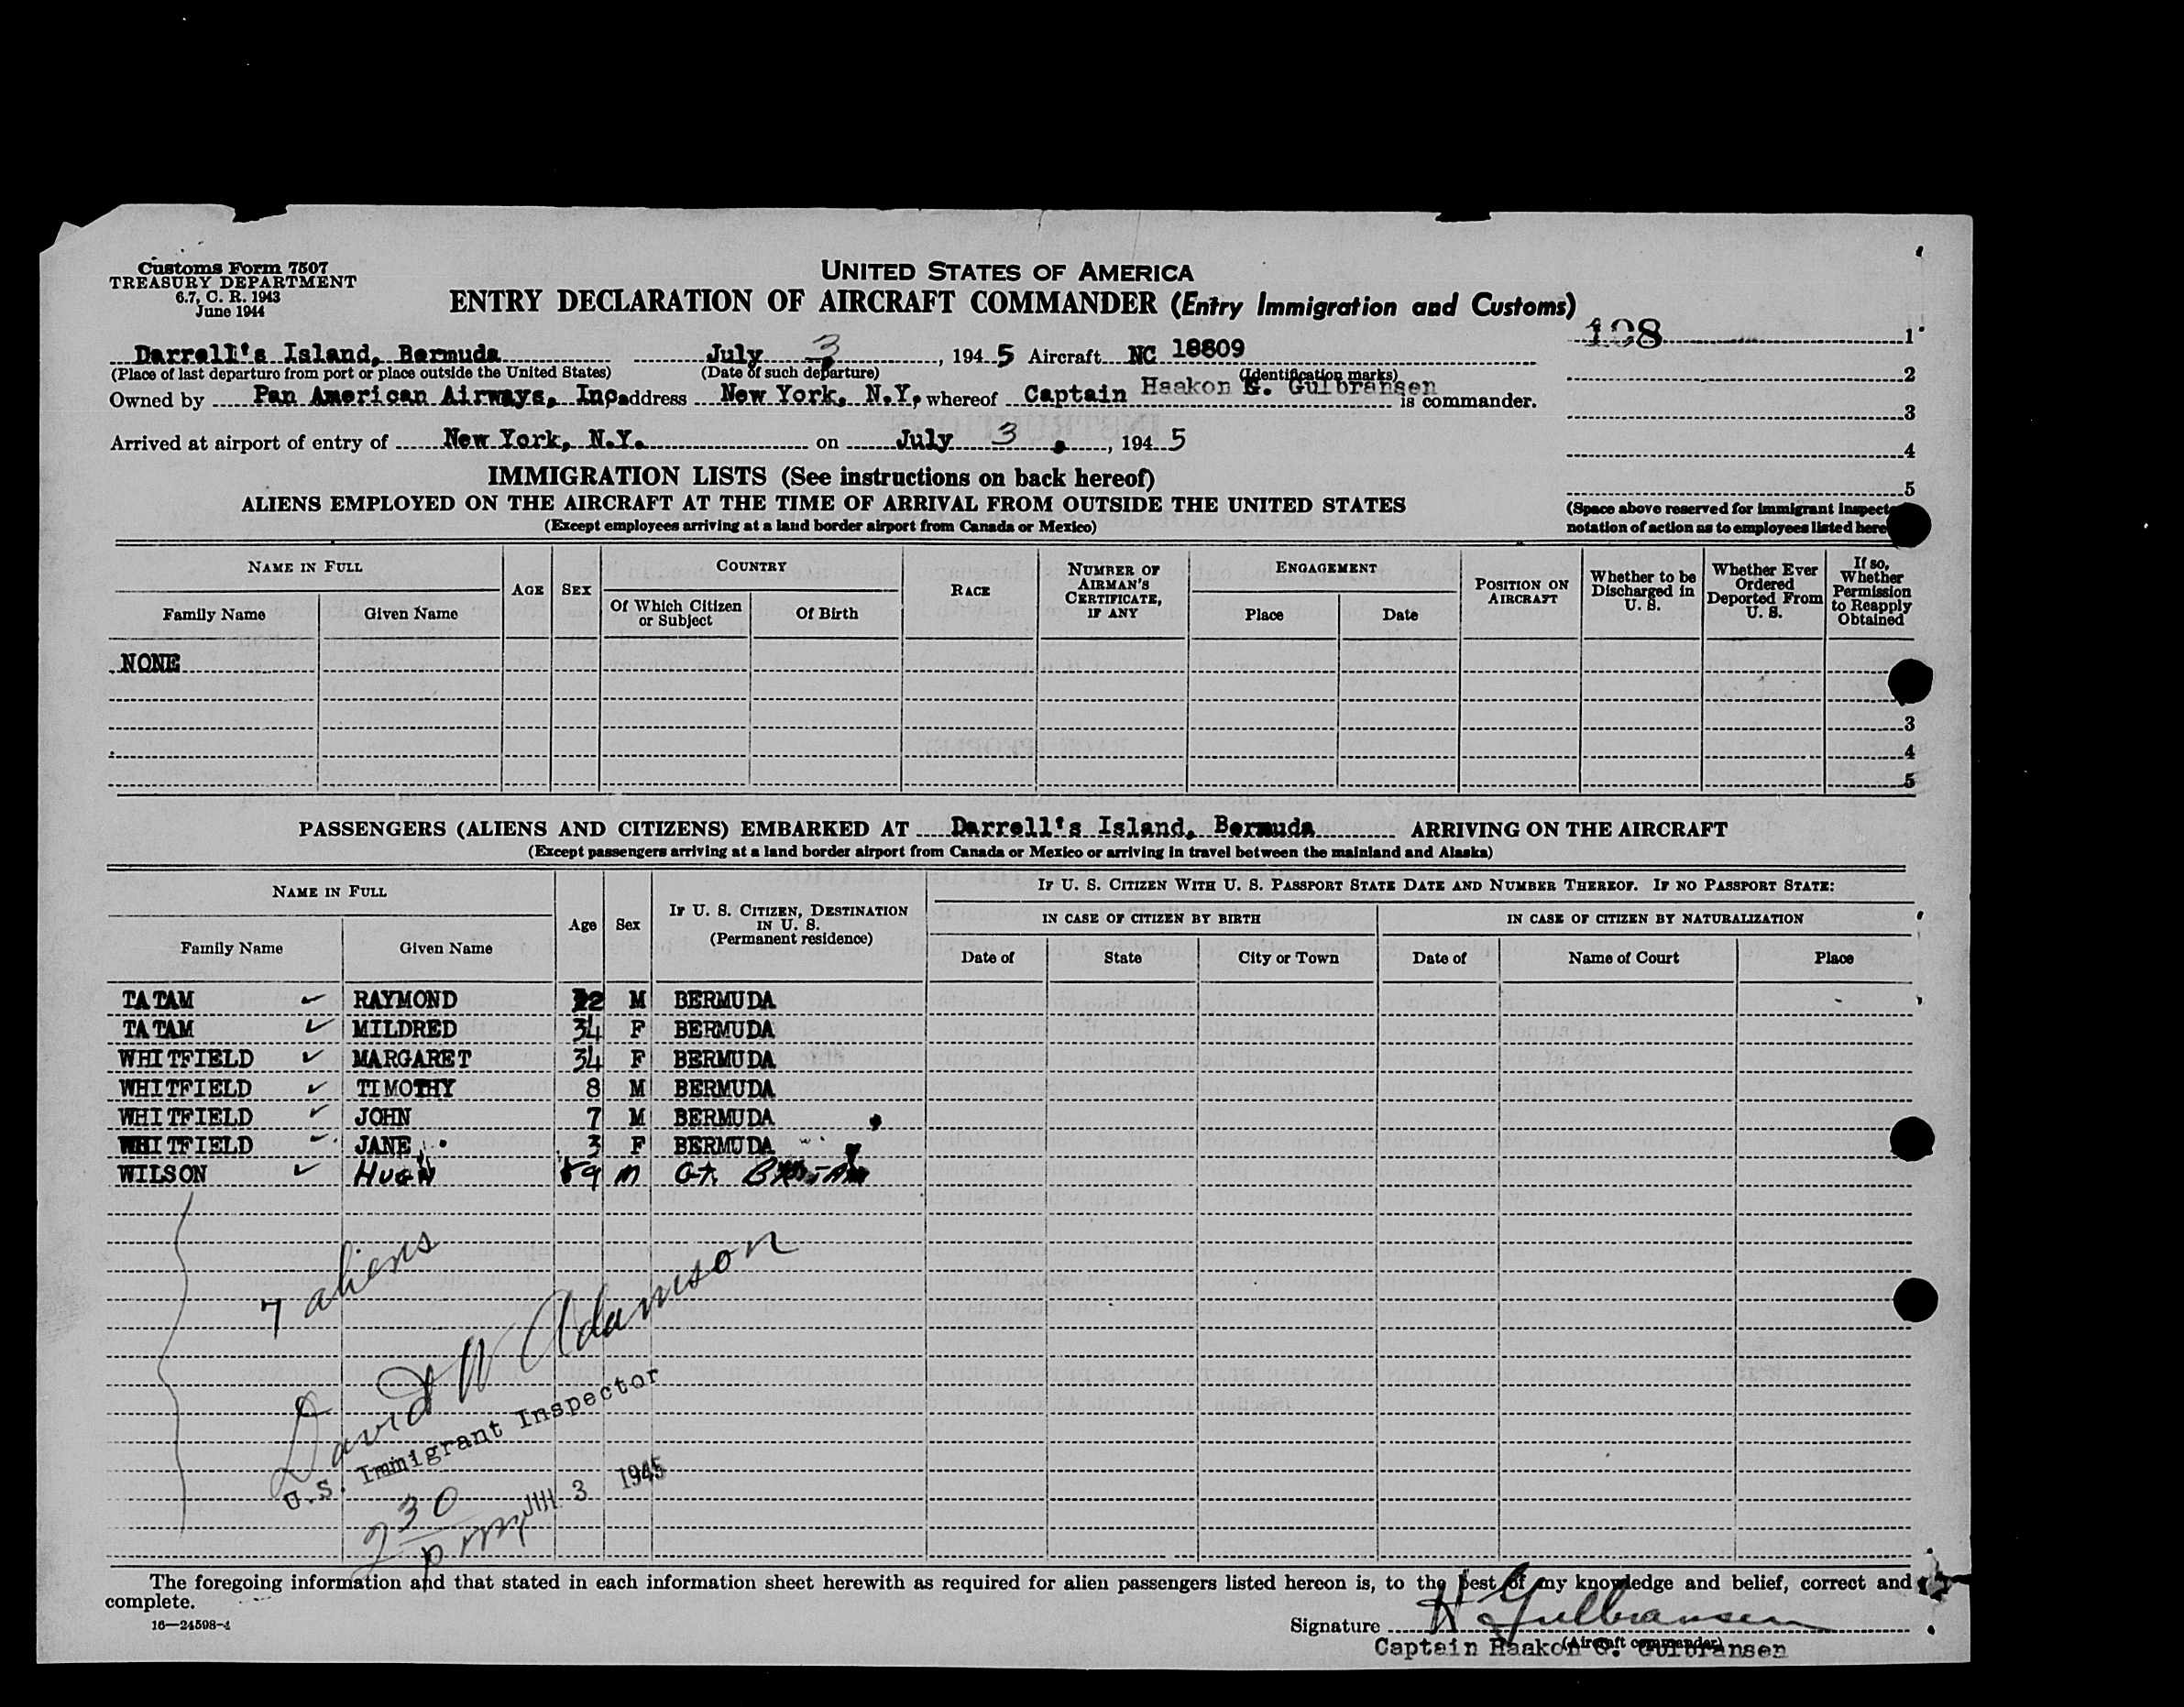 Customs Form 7507
TREASURY DEPARTMENT
6.7, C. R. 1943
June 1944
UNITED STATES OF AMERICA
ENTRY DECLARATION OF AIRCRAFT COMMANDER (Entry Immigration and Customs)
198 1
Darrell's Island, Bermuda July 3, 1945 Aircraft NC 18609
(Place of last departure from port or place outside the United States) (Date of such departure) (Identification marks)
2
Owned by Pan American Airways, Inc. address New York, N.Y. whereof Captain Haakon G. Gulbransen is commander.
3
Arrived at airport of entry of New York, N.Y. on July 3, 1945
4
IMMIGRATION LISTS (See instructions on back hereof)
5
ALIENS EMPLOYED ON THE AIRCRAFT AT THE TIME OF ARRIVAL FROM OUTSIDE THE UNITED STATES
(Except employees arriving at a land border airport from Canada or Mexico)
(Space above reserved for immigrant
notation of action as to employees listed
NAME IN FULL AGE SEX COUNTRY RACE NUMBER OF AIRMAN'S CERTIFICATE, IF ANY ENGAGEMENT POSITION ON AIRCRAFT Whether to be Discharged in U. S. Whether Ever Ordered Deported From U. S. If so, Whether Permission to Reapply Obtained
Family Name Given Name Of Which Citizen or Subject Of Birth Place Date
NONE
3
4
5
PASSENGERS (ALIENS AND CITIZENS) EMBARKED AT Darrell's Island, Bermuda ARRIVING ON THE AIRCRAFT
(Except passengers arriving at a land border airport from Canada or Mexico or arriving in travel between the mainland and Alaska)
NAME IN FULL Age Sex IF U. S. CITIZEN, DESTINATION IN U. S. (Permanent residence) IF U. S. CITIZEN WITH U. S. PASSPORT STATE DATE AND NUMBER THEREOF. IF NO PASSPORT STATE:
IN CASE OF CITIZEN BY BIRTH IN CASE OF CITIZEN BY NATURALIZATION
Family Name Given Name Date of State City or Town Date of Name of Court Place
TATAM ✓ RAYMOND M BERMUDA
TATAM ✓ MILDRED 34 F BERMUDA
WHITFIELD ✓ MARGARET 34 F BERMUDA
WHITFIELD ✓ TIMOTHY 8 M BERMUDA
WHITFIELD ✓ JOHN 7 M BERMUDA
WHITFIELD ✓ JANE 3 F BERMUDA
WILSON ✓ HUGH M GT.
7 aliens
David W Adamson
U.S. Immigrant Inspector
230 pm JUL 3 1945
The foregoing information and that stated in each information sheet herewith as required for alien passengers listed hereon is, to the best of my knowledge and belief, correct and
complete.
16—24598-4
Signature H G Gulbransen
(Aircraft commander)
Captain Haakon G. Gulbransen